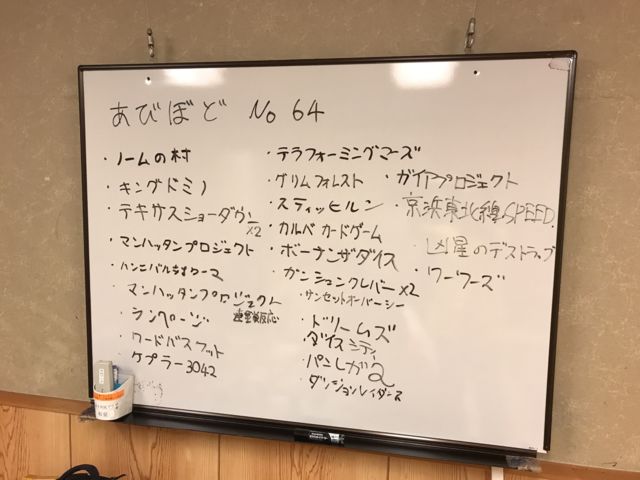 あびぼど No 64
・ノームの村
・キングドミノ
・テキサスショーダウン×2
・マンハッタンプロジェクト
・ハンニバル対ローマ
・マンハッタンプロジェクト 連鎖反応
・ランページ
・ワードバスケット
・ケプラー3042
・テラフォーミングマーズ
・グリムフォレスト
・スティッヒルン
・カルベ カードゲーム
・ボーナンザダイス
・ガンシュンクレバー×2
・サンセットオーバーシー
・ドリームズ
・ダイスシティ
・パンレガ2
・ダンジョンレイダース
・ガイアプロジェクト
・京浜東北線SPEED
・凶星のデストラップ
・ワーワーズ